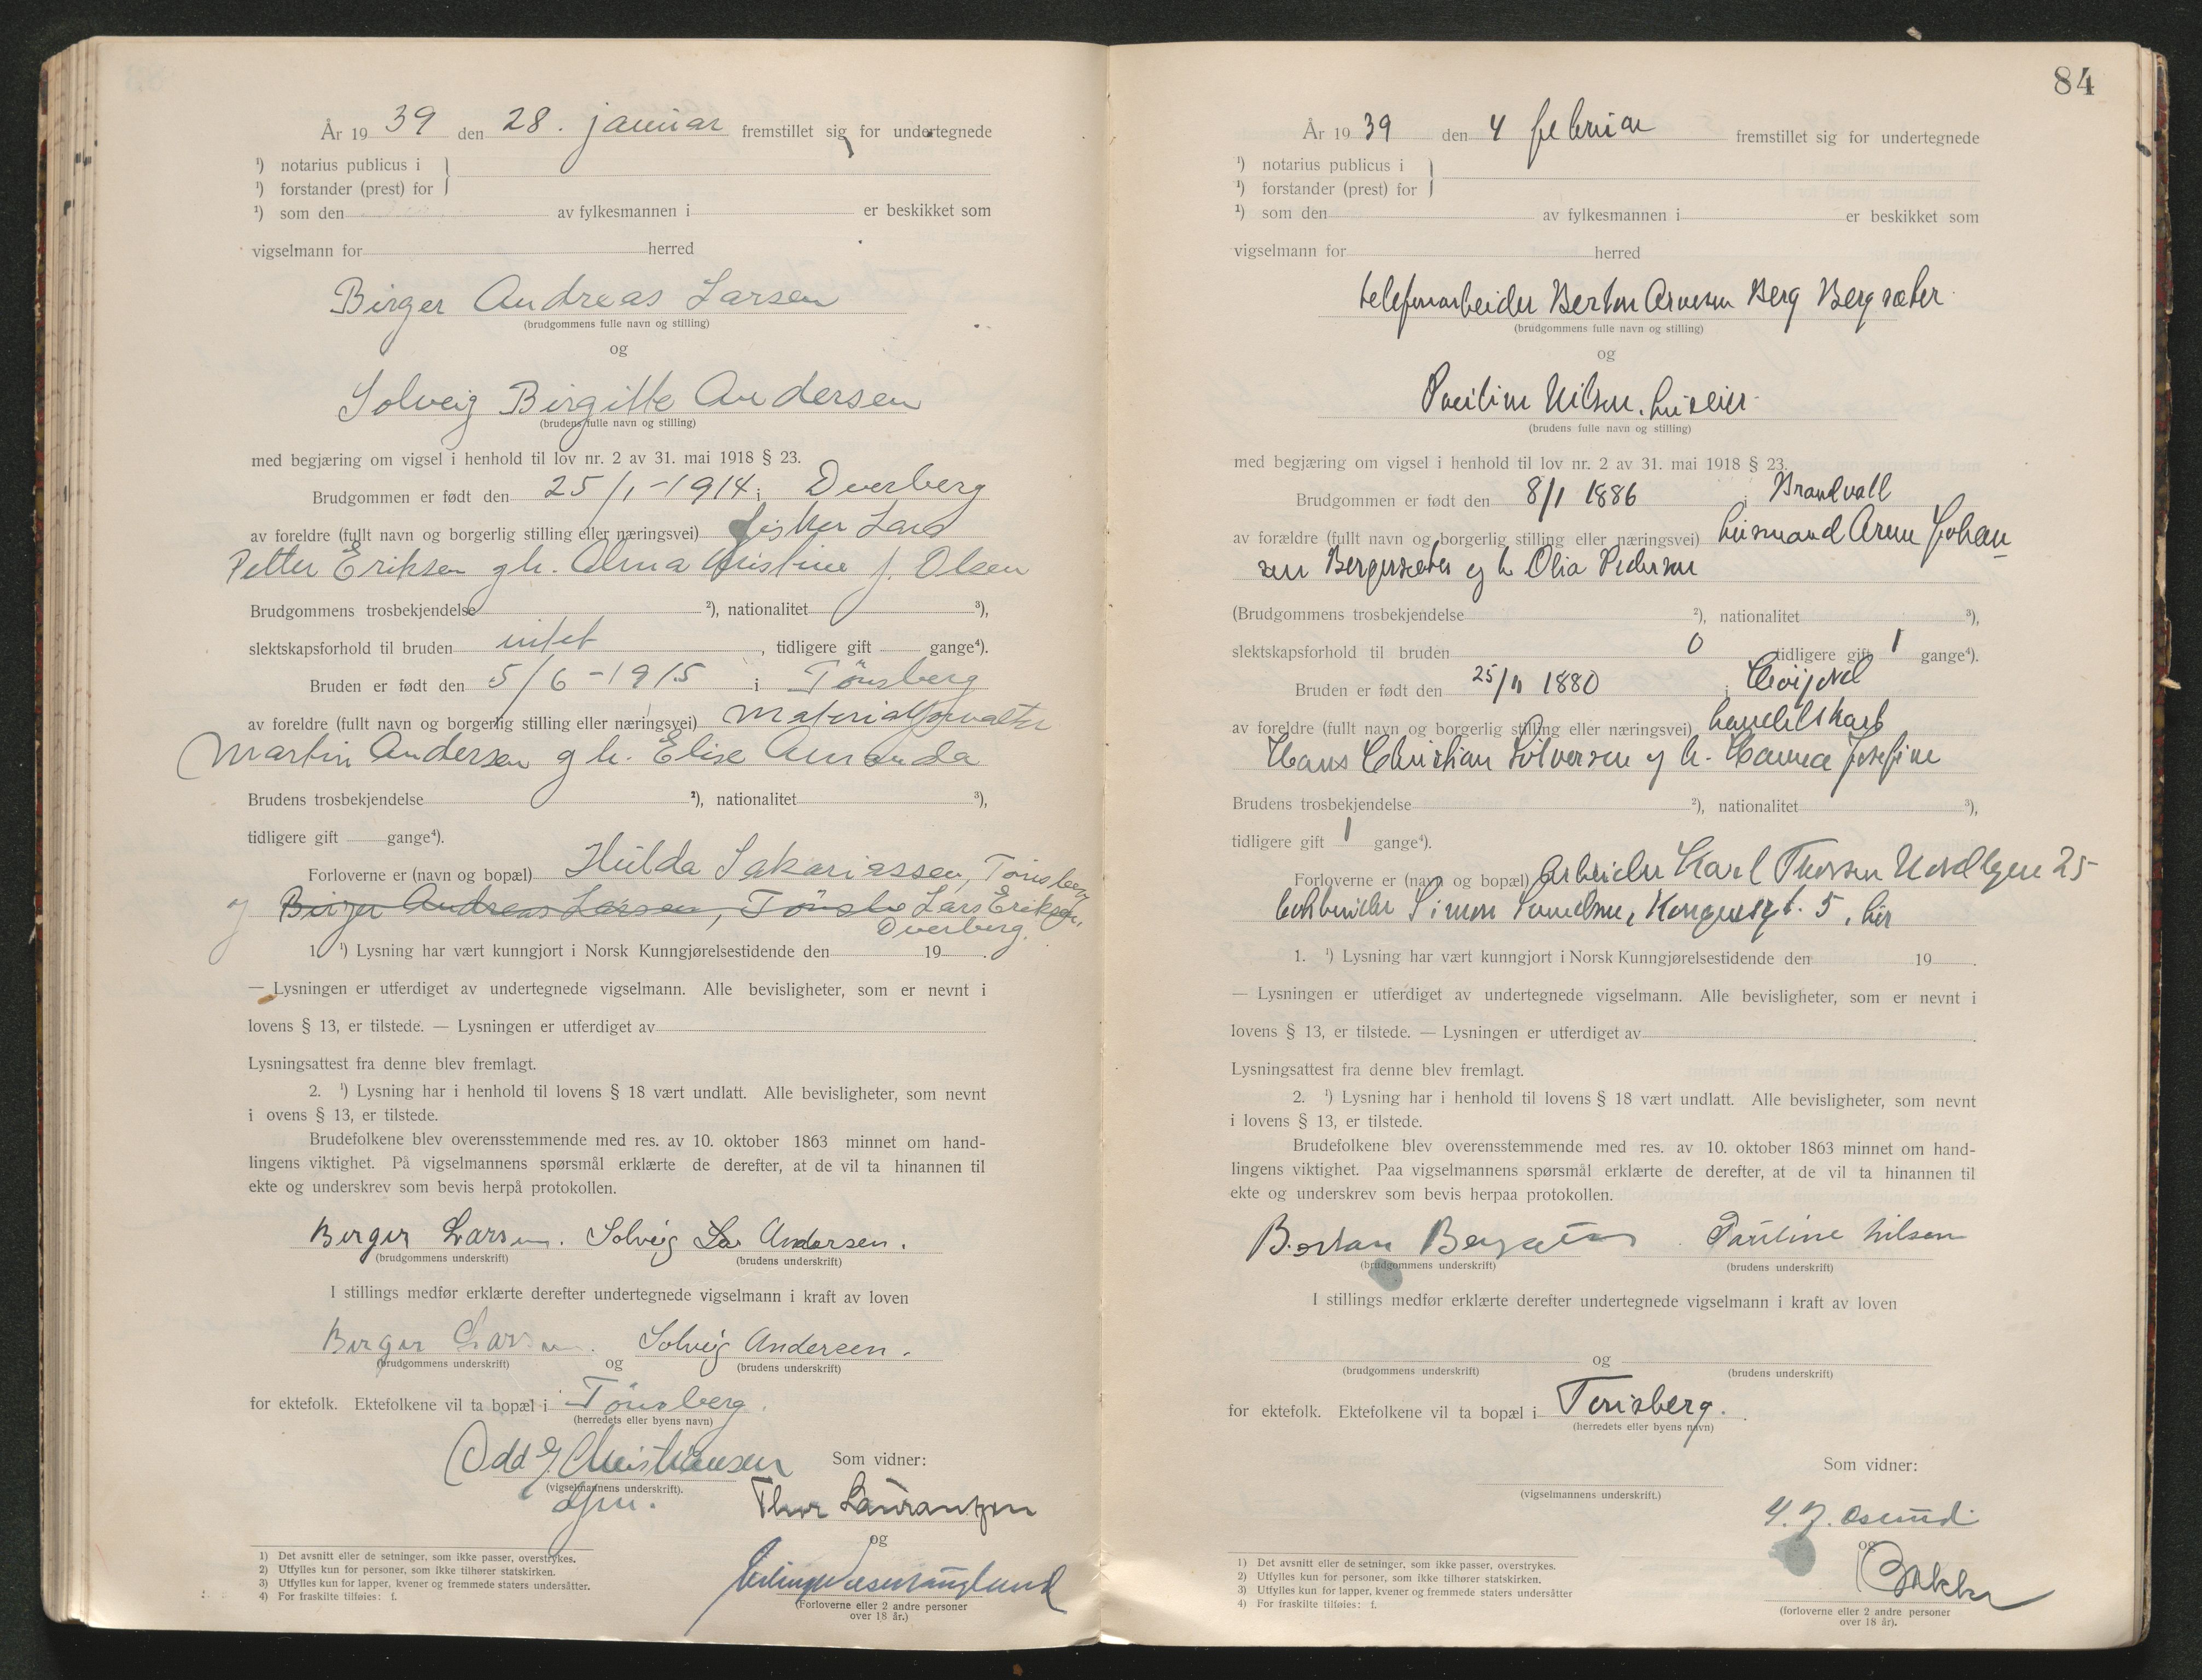 År 19 39 den 28. januar fremstillet sig for undertegnede
¹) notarius publicus i
¹) forstander (prest) for
¹) som den av fylkesmannen i er beskikket som
vigselmann for herred
Birger Andreas Larsen
(brudgommens fulle navn og stilling)
og
Solveig Birgitte Andersen
(brudens fulle navn og stilling)
med begjæring om vigsel i henhold til lov nr. 2 av 31. mai 1918 § 23.
Brudgommen er født den 25/1-1914 i Dverberg
av foreldre (fullt navn og borgerlig stilling eller næringsvei) fisker Lars
Petter Eriksen g.h. Alma Kristine f. Olsen
Brudgommens trosbekjendelse ²), nationalitet ³),
slektskapsforhold til bruden intet, tidligere gift gange⁴).
Bruden er født den 5/6-1915 i Tönsberg
av foreldre (fullt navn og borgerlig stilling eller næringsvei) materialforvalter
Martin Andersen g.h. Elise Amanda
Brudens trosbekjendelse ²), nationalitet ³),
tidligere gift gange⁴).
Forloverne er (navn og bopæl) Hilda Sakariassen, Tönsberg
og Birger Andreas Larsen, Tönsb Lars Eriksen,
Dverberg.
1. ¹) Lysning har vært kunngjort i Norsk Kunngjørelsestidende den 19 .
— Lysningen er utferdiget av undertegnede vigselmann. Alle bevisligheter, som er nevnt i
lovens § 13, er tilstede. — Lysningen er utferdiget av
Lysningsattest fra denne blev fremlagt.
2. ¹) Lysning har i henhold til lovens § 18 vært undlatt. Alle bevisligheter, som nevnt
i ovens § 13, er tilstede.
Brudefolkene blev overensstemmende med res. av 10. oktober 1863 minnet om hand-
lingens viktighet. På vigselmannens spørsmål erklærte de derefter, at de vil ta hinannen til
ekte og underskrev som bevis herpå protokollen.
Birger Larsen. Solveig La Andersen.
(brudgommens underskrift) (brudens underskrift)
I stillings medfør erklærte derefter undertegnede vigselmann i kraft av loven
Birger Larsen. Solveig Andersen.
(brudgommens underskrift) og (brudens underskrift)
for ektefolk. Ektefolkene vil ta bopæl i Tönsberg.
(herredets eller byens navn)
Odd Christiansen Som vidner:
(vigselmannens underskrift).
Thor Laurantzen
og
(Forloverne eller 2 andre personer
over 18 år.)
1) Det avsnitt eller de setninger, som ikke passer, overstrykes.
2) Utfylles kun for personer, som ikke tilhører statskirken.
3) Utfylles kun for lapper, kvener og fremmede staters undersåtter.
4) For fraskilte tilføies: f.
84
År 19 39 den 4 februar fremstillet sig for undertegnede
¹) notarius publicus i
¹) forstander (prest) for
¹) som den av fylkesmannen i er beskikket som
vigselmann for herred
telefonarbeider Berton Arnesen Berg Bergsæter
(brudgommens fulle navn og stilling)
og
Pauline Nilsen, huseier
(brudens fulle navn og stilling)
med begjæring om vigsel i henhold til lov nr. 2 av 31. mai 1918 § 23.
Brudgommen er født den 8/1 1886 i Brandvall
av forældre (fullt navn og borgerlig stilling eller næringsvei) husmand Arne Johan
sen Bergersæter og h Olia Pedersen
(Brudgommens trosbekjendelse ²), nationalitet ³),
slektskapsforhold til bruden 0 tidligere gift 1 gange⁴).
Bruden er født den 25/11 1880 i
av foreldre (fullt navn og borgerlig stilling eller næringsvei) handelskarl
Hans Christian Sölversen og h. Hanna Josefine
Brudens trosbekjendelse ²), nationalitet ³),
tidligere gift 1 gange⁴).
Forloverne er (navn og bopæl) arbeider Karl Thorsen Nordbyen 25
Simon Kongensgt. 5, her
1. ¹) Lysning har vært kunngjort i Norsk Kunngjørelsestidende den 19 .
— Lysningen er utferdiget av undertegnede vigselmann. Alle bevisligheter, som er nevnt i
lovens § 13, er tilstede. — Lysningen er utferdiget av
Lysningsattest fra denne blev fremlagt.
2. ¹) Lysning har i henhold til lovens § 18 vært undlatt. Alle bevisligheter, som nevnt
i lovens § 13, er tilstede.
Brudefolkene blev overensstemmende med res. av 10. oktober 1863 minnet om hand-
lingens viktighet. Paa vigselmannens spørsmål erklærte de derefter, at de vil ta hinannen til
ekte og underskrev som bevis herpaa protokollen.
Bertan Bergsæter Pauline Nilsen
(brudgommens underskrift) (brudens underskrift)
I stillings medfør erklærte derefter undertegnede vigselmann i kraft av loven
og
(brudgommens underskrift) (brudens underskrift)
for ektefolk. Ektefolkene vil ta bopæl i Tönsberg.
(herredets eller byens navn)
Som vidner:
(vigselmannens underskrift.)
og
Bakke
(forloverne eller 2 andre personer
over 18 år).
1) Det avsnitt eller de setninger, som ikke passer, overstrykes.
2) Utfylles kun for personer, som ikke tilhører statskirken.
3) Utfylles kun for lapper, kvener og fremmede staters undersåtter
4) For fraskilte tilføies: f.